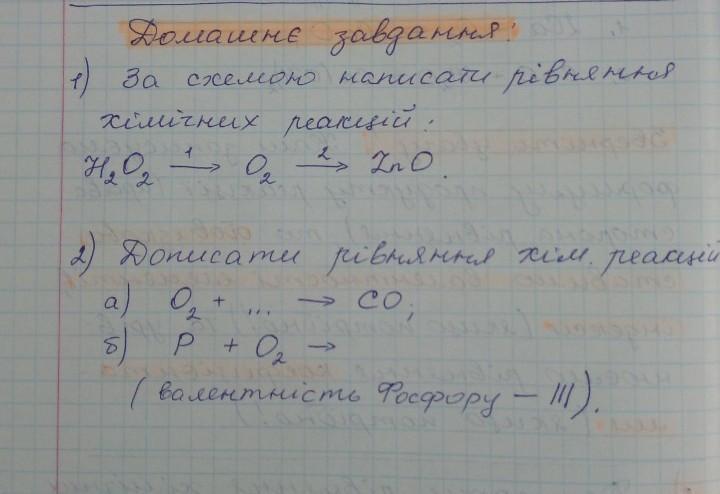 Домашнє завдання:
1) За схемою написати рівняння
хімічних реакцій:
H₂O₂ —1→ O₂ —2→ ZnO.
2) Дописати рівняння хім. реакцій
а) O₂ + ... → CO;
б) P + O₂ →
(валентність Фосфору – III).